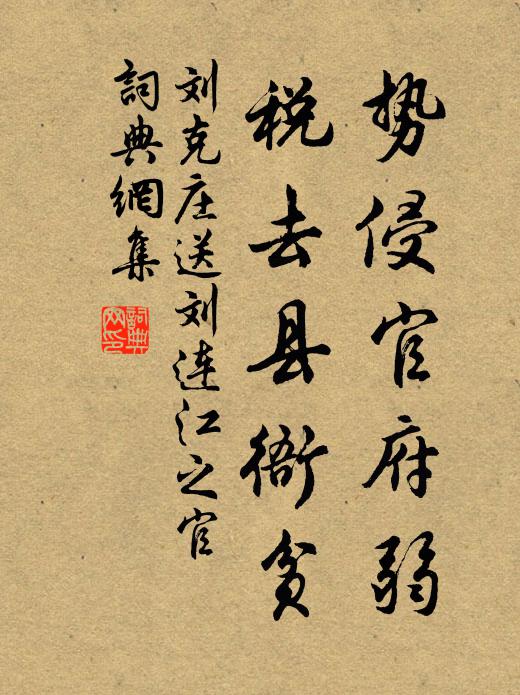 势侵官府弱
税去县衙贫
刘克庄送刘连江之官
詞典網集
詞典
网印